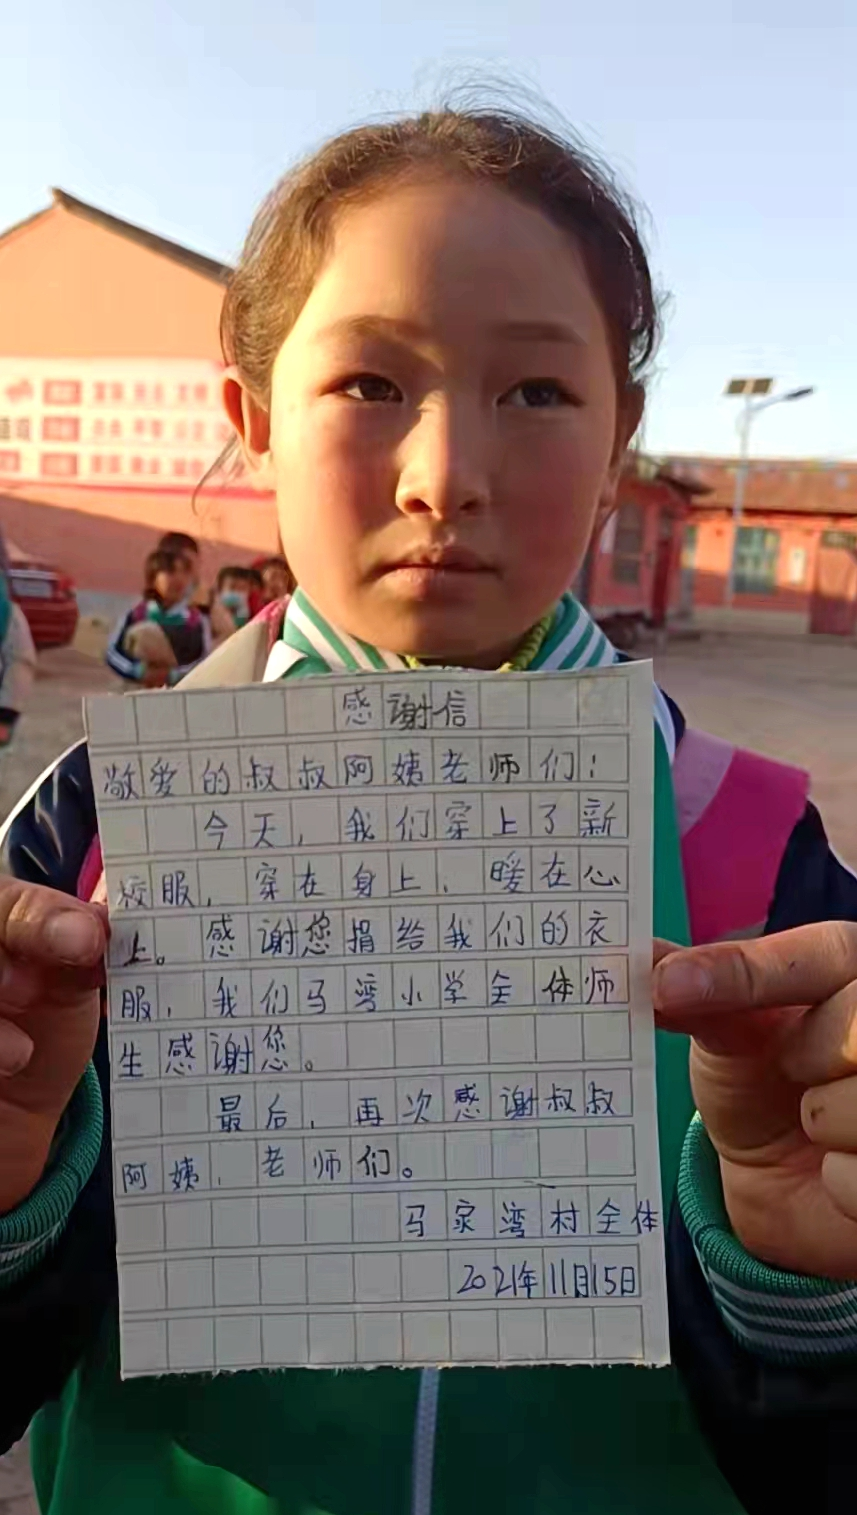 感谢信
敬爱的叔叔阿姨老师们：
今天，我们穿上了新
校服，穿在身上，暖在心
上。感谢您捐给我们的衣
服，我们马湾小学全体师
生感谢您。
最后，再次感谢叔叔
阿姨，老师们。
马家湾村全体
2021年11月15日